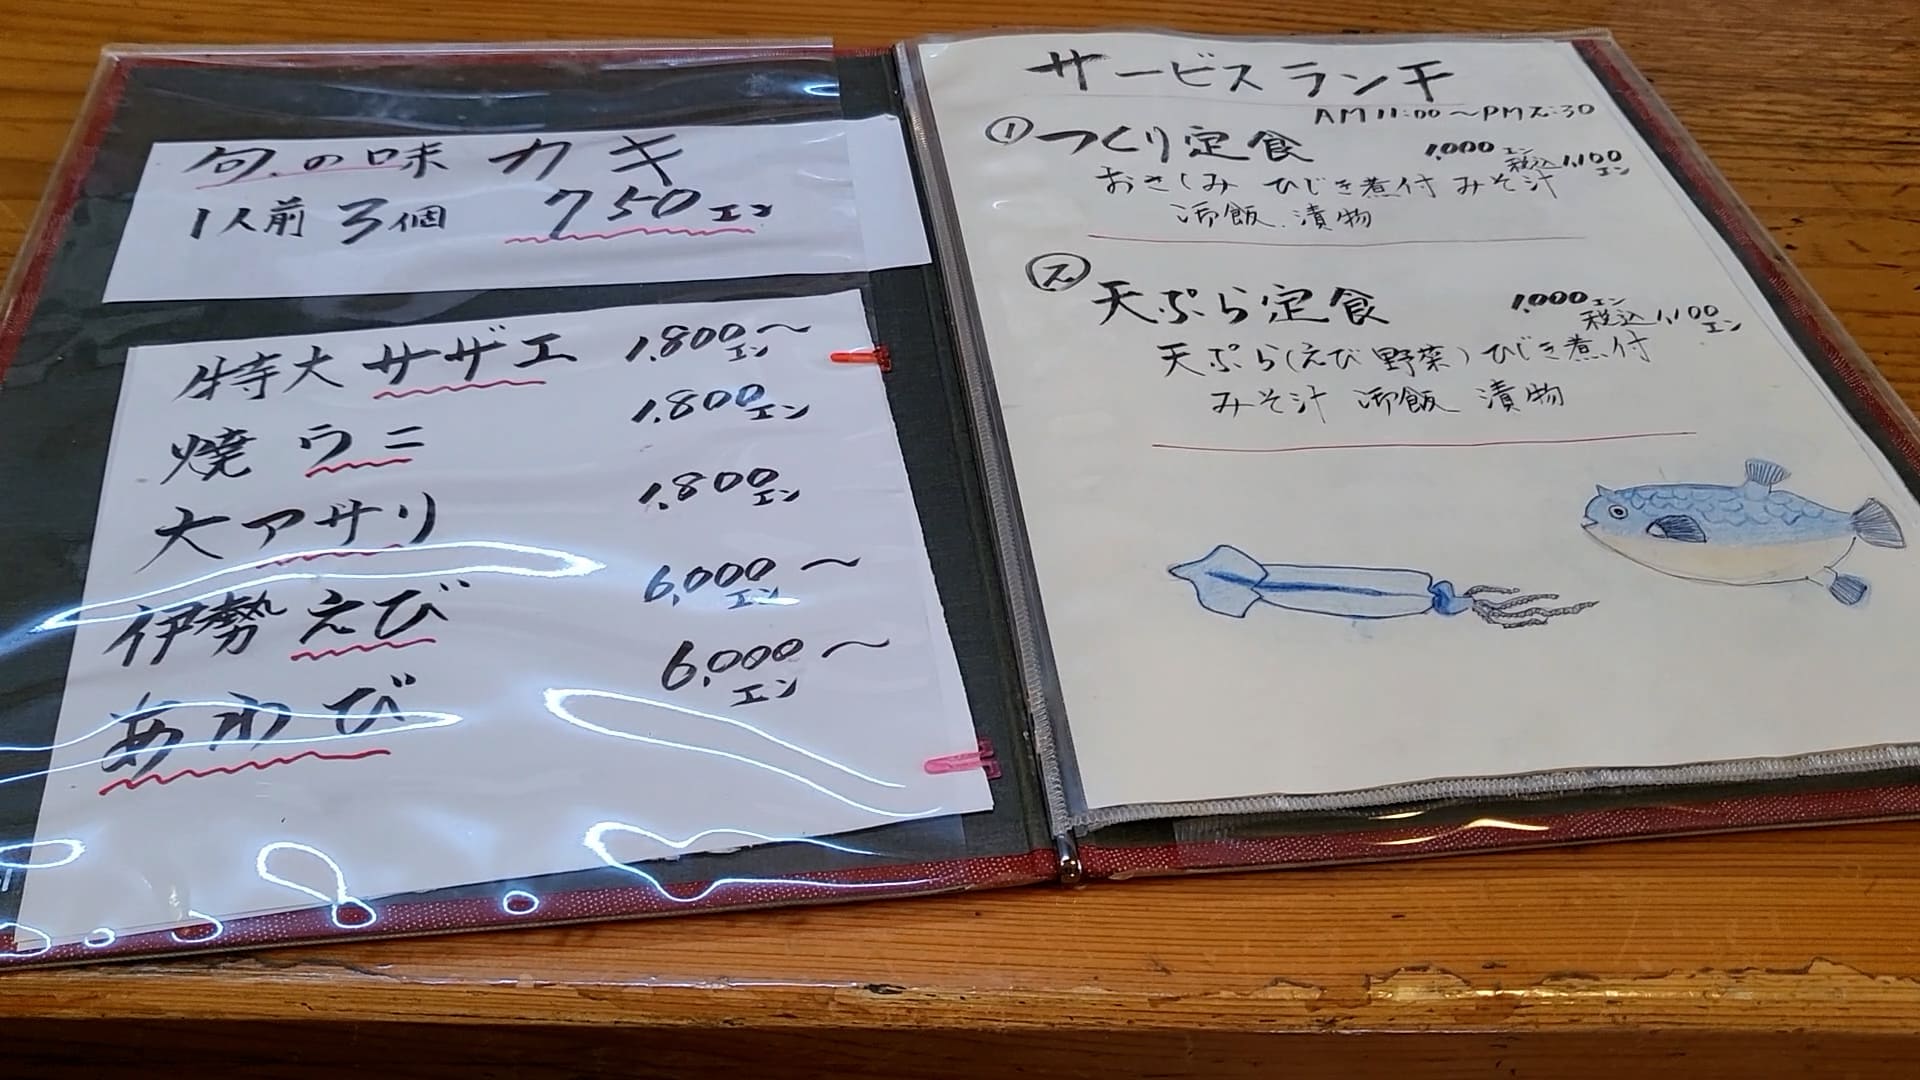 旬の味 カキ
1人前 3個 750エン
特大 サザエ 1,800〜エン
焼 ウニ 1,800エン
大アサリ 1,800エン
伊勢えび 6,000〜エン
あわび 6,000〜エン
サービスランチ
AM11:00〜PM2:30
①つくり定食 1,000エン 税込1,100エン
おさしみ ひじき煮付 みそ汁
御飯 漬物
②天ぷら定食 1,000エン 税込1,100エン
天ぷら(えび 野菜) ひじき煮付
みそ汁 御飯 漬物